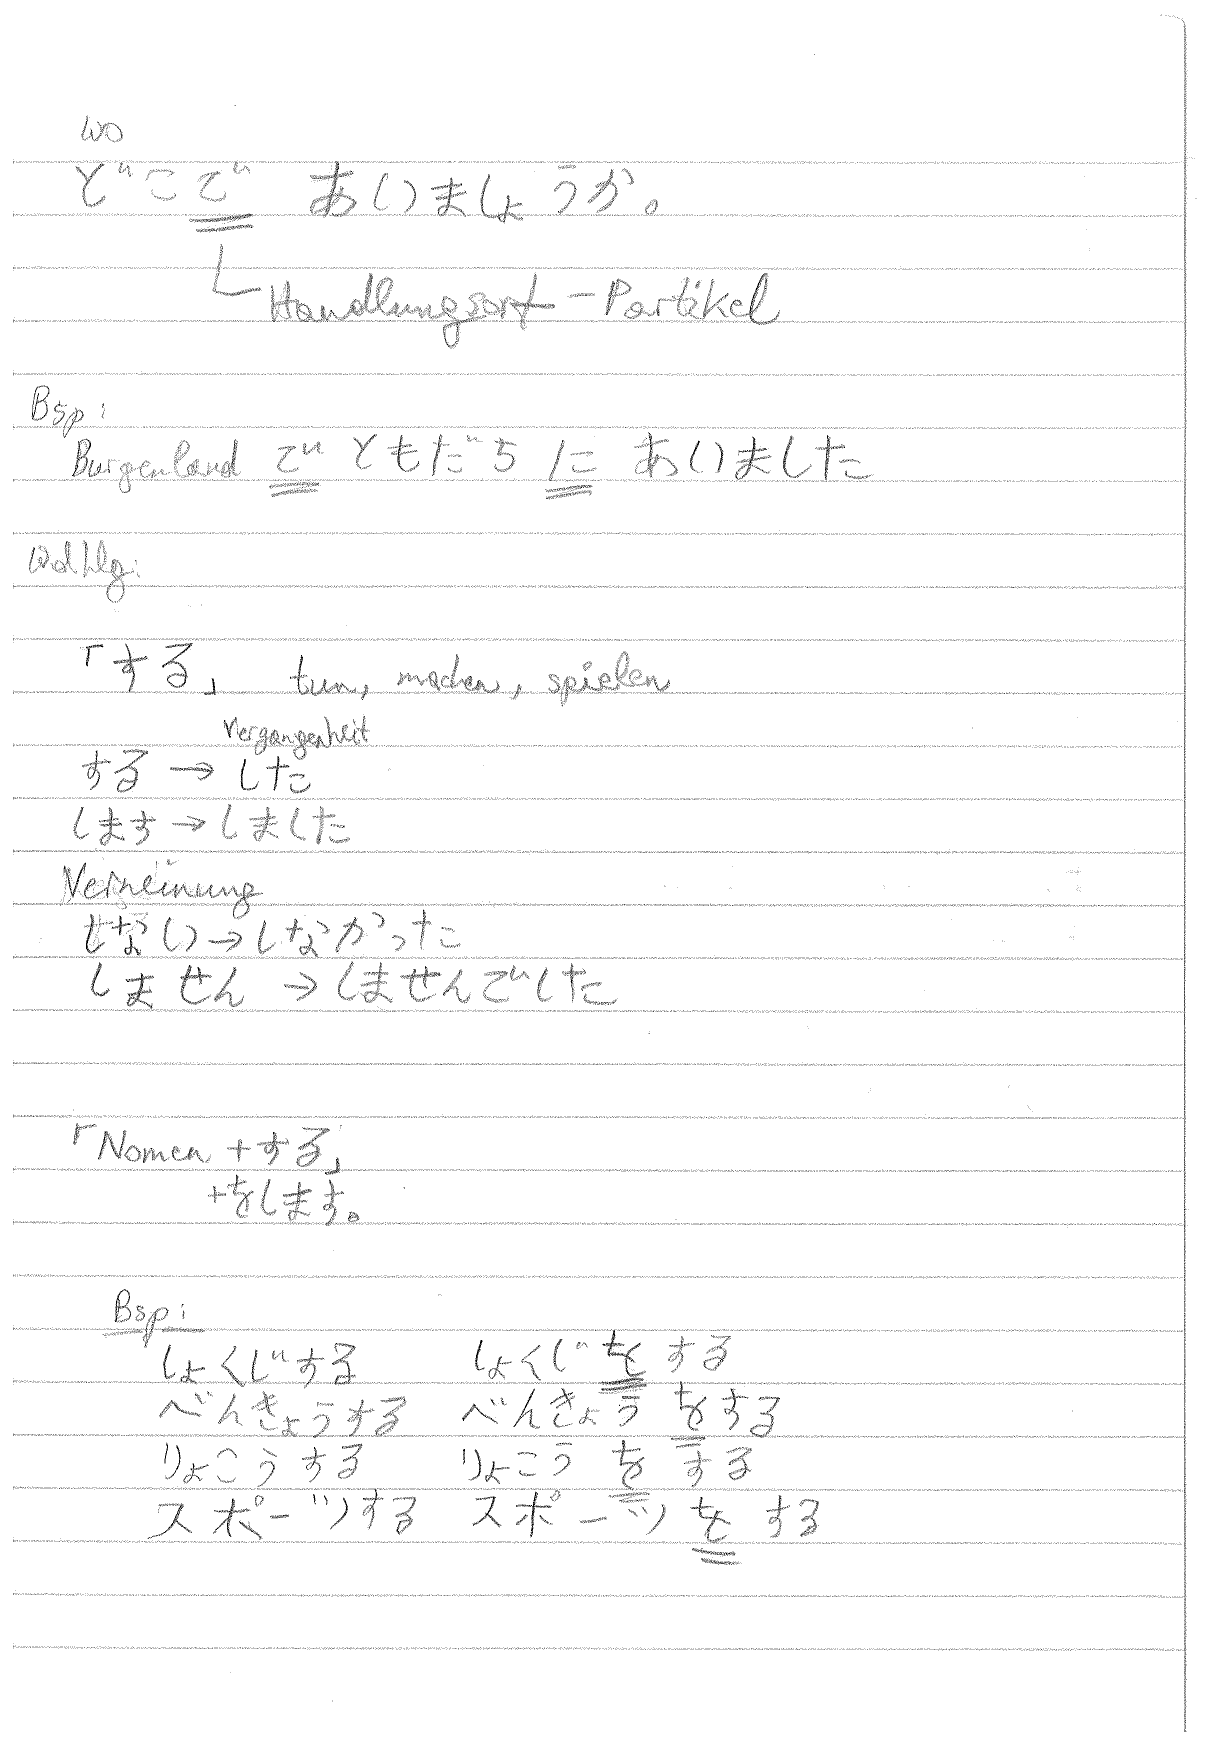 wo
どこで あいましょうか。
Handlungsort-Partikel
Bsp:
Burgenland で ともだち に あいました
Wdhlg:
「する」 tun, machen, spielen
Vergangenheit
する → した
します → しました
Verneinung
しない → しなかった
しません → しませんでした
「Nomen + する」
+をします。
Bsp:
しょくじする しょくじをする
べんきょうする べんきょうをする
りょこうする りょこうをする
スポーツする スポーツをする